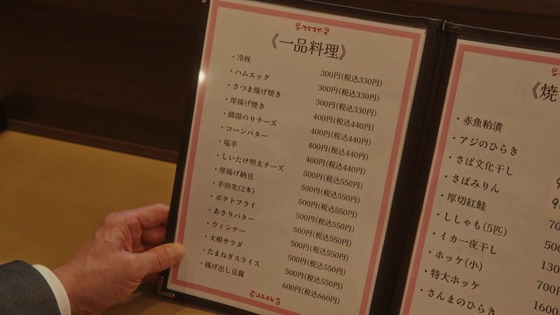 《一品料理》
・冷奴 300円(税込330円)
・ハムエッグ 300円(税込330円)
・さつま揚げ焼き 300円(税込330円)
・厚揚げ焼き 400円(税込440円)
・韓国のりチーズ 400円(税込440円)
・コーンバター 400円(税込440円)
・塩辛 400円(税込440円)
・しいたけ明太チーズ 500円(税込550円)
・厚揚げ納豆 500円(税込550円)
・手羽先(2本) 500円(税込550円)
・ポテトフライ 500円(税込550円)
・あさりバター 500円(税込550円)
・ウィンナー 500円(税込550円)
・大根サラダ 500円(税込550円)
・たまねぎスライス 500円(税込550円)
・揚げ出し豆腐 600円(税込660円)
《焼
・赤魚粕漬
・アジのひらき
・さば文化干し
・さばみりん
・厚切紅鮭
・ししゃも(5匹)
・イカ一夜干し
・ホッケ(小)
・特大ホッケ
・さんまのひらき